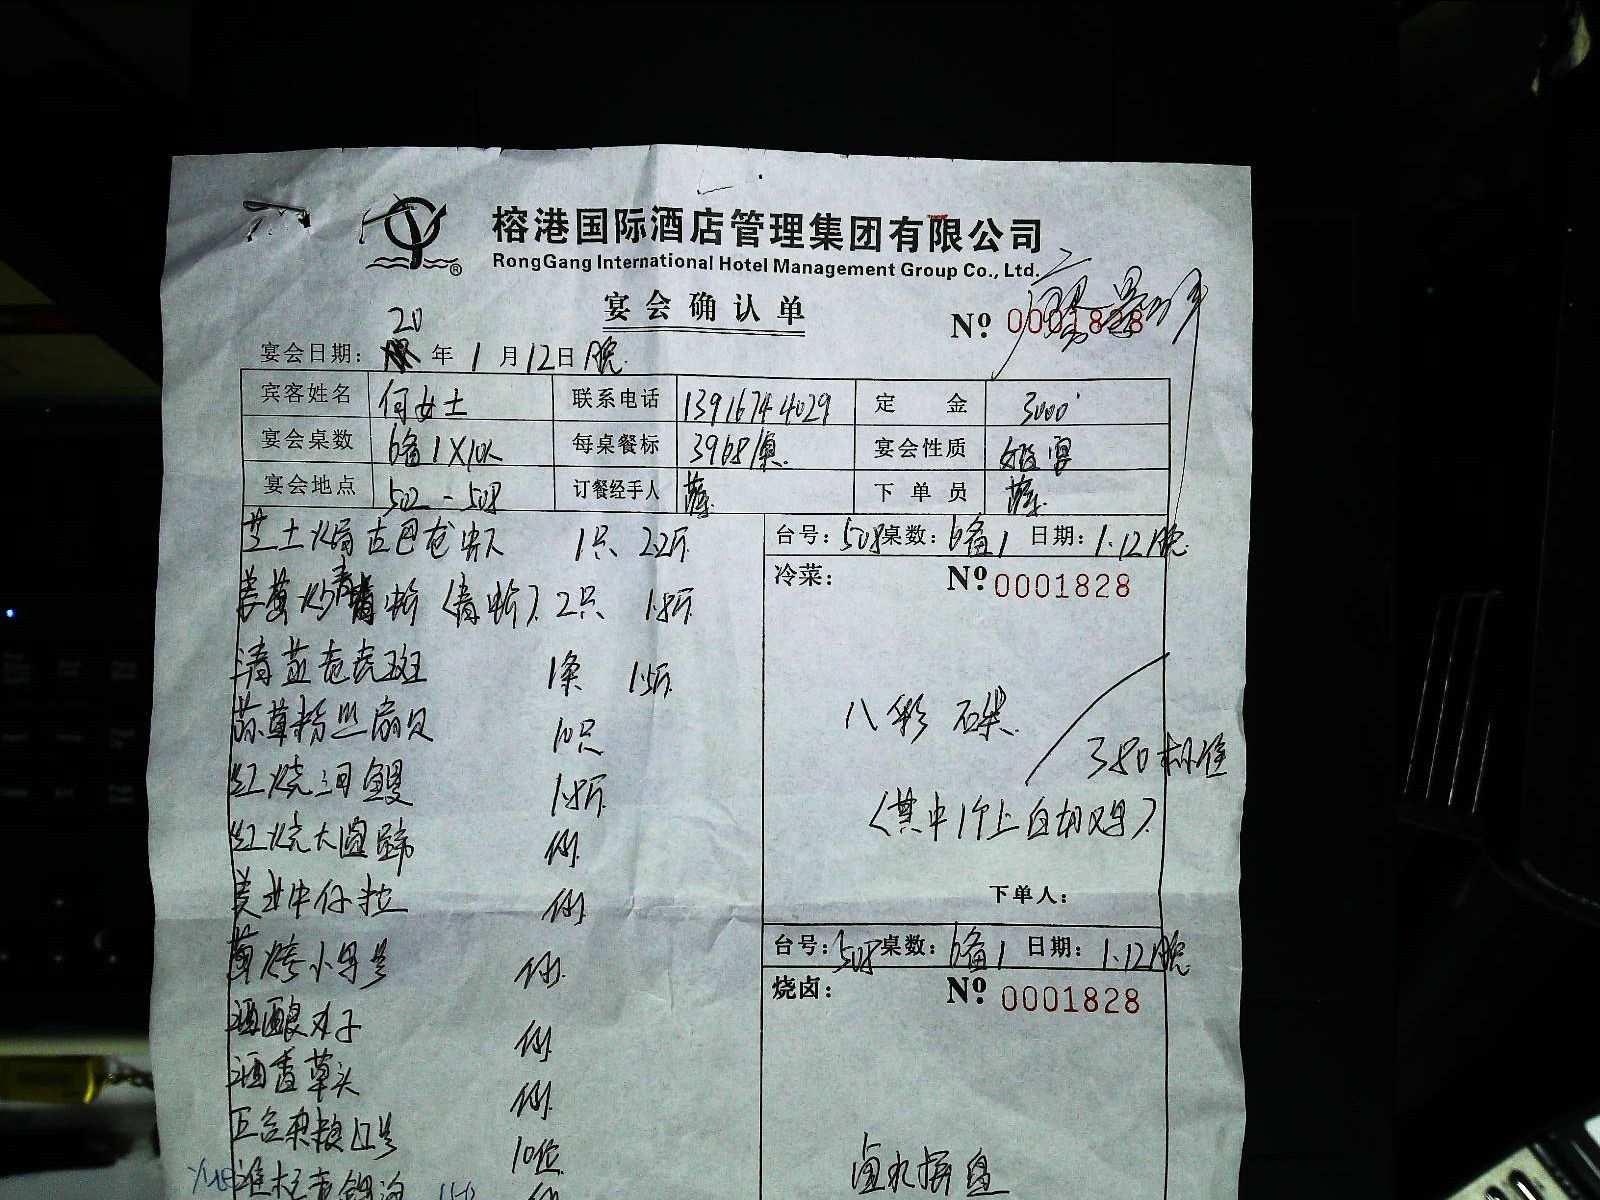 榕港国际酒店管理集团有限公司
RongGang International Hotel Management Group Co., Ltd.
宴会确认单
№ 0001828
宴会日期: 20 年 1 月 12 日 晚
宾客姓名 何女士 联系电话 13916744029 定金 3000
宴会桌数 6备1×10人 每桌餐标 3968/桌 宴会性质 婚宴
宴会地点 502-508 订餐经手人 下单员
芝士焗古巴龙虾 1只 2.2斤
姜葱炒青蟹 2只 1.8斤
清蒸老虎斑 1条 1.5斤
蒜蓉粉丝扇贝 10只
红烧河鳗 1.8斤
红烧大圆蹄 例
牛仔粒 例
例
酒酿圆子 例
酒香草头 例
10位
台号: 508 桌数: 6备1 日期: 1.12晚
冷菜: № 0001828
八彩碟
380标准
(其中1个上白切鸡)
下单人:
台号: 508 桌数: 6备1 日期: 1.12晚
烧卤: № 0001828
卤水拼盘